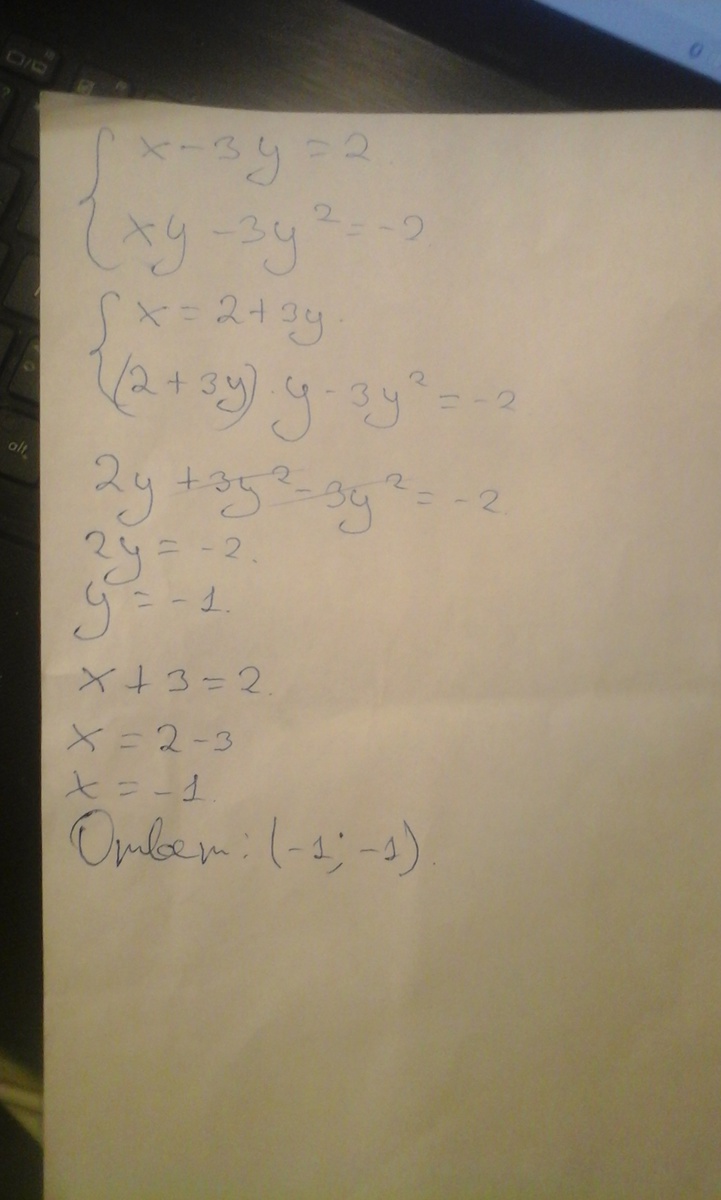 x - 3y = 2
xy - 3y² = -2
x = 2 + 3y.
(2 + 3y) · y - 3y² = -2
2y + 3y² - 3y² = -2.
2y = -2.
y = -1.
x + 3 = 2.
x = 2 - 3
x = -1.
Ответ: (-1; -1).